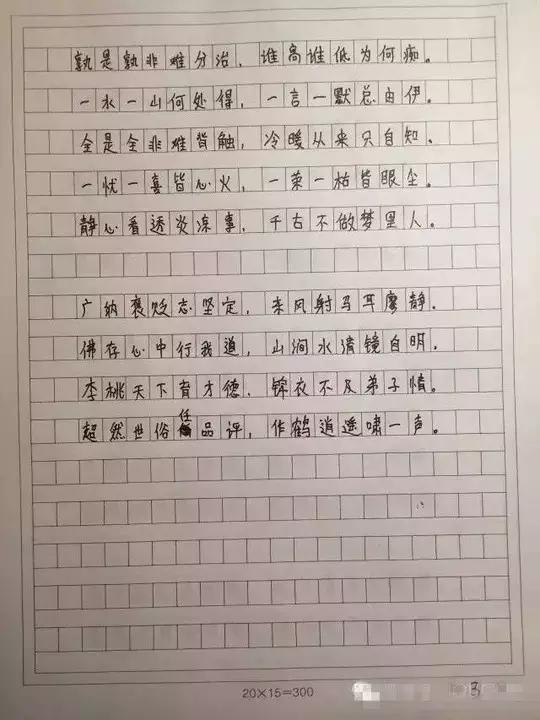 孰是孰非难分治，谁高谁低为何痴。
一水一山何处得，一言一默总由伊。
全是全非难背触，冷暖从来只自知。
一忧一喜皆心火，一荣一枯皆眼尘。
静心看透炎凉事，千古不做梦里人。
广纳褒贬志坚定，东风射马耳廖静。
佛存心中行我道，山涧水清镜自明。
李桃天下育才德，锦衣不及弟子情。
超然世俗任品评，作鹤逍遥啸一声。
20×15=300
3